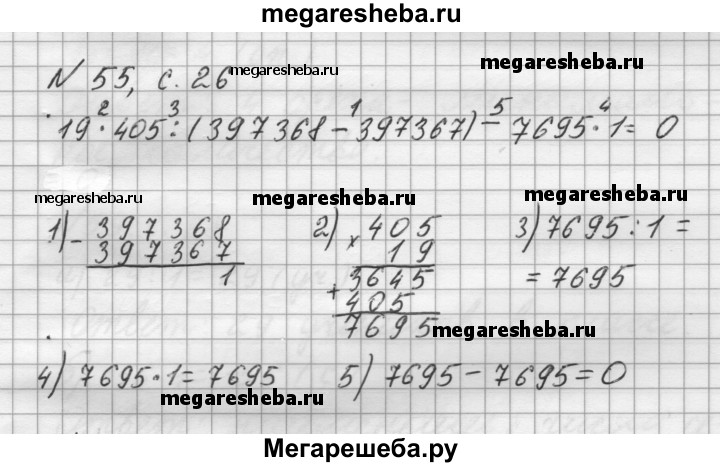 megaresheba.ru
N 55, с. 26 megaresheba.ru megaresheba.ru
2 3 1 5 4
19 · 405 : (397368 - 397367) - 7695 · 1 = 0
megaresheba.ru megaresheba.ru megaresheba.ru
1) - 397368 2) × 405 3) 7695 : 1 =
397367 19 = 7695
1 + 3645
405
7695 megaresheba.ru
4) 7695 · 1 = 7695 5) 7695 - 7695 = 0
megaresheba.ru
Мегарешеба.ру